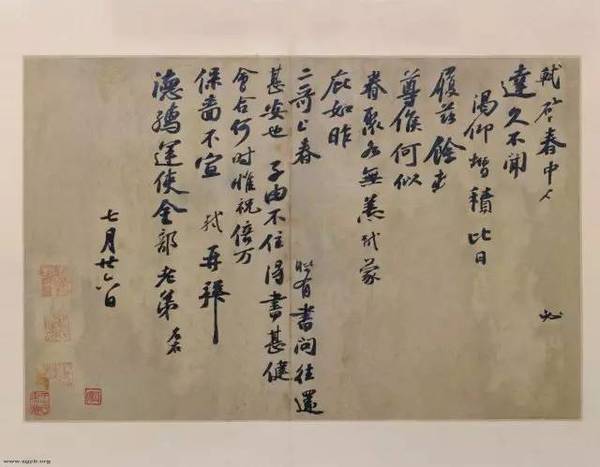 軾啓春中 必
達久不聞
渴仰增積比日
履兹餘
尊候何似
眷聚各無恙軾蒙
庇如昨
二哥上春 時有書問往還
甚安也 子由不住得書甚健
會合何時惟祝倍万
保嗇不宣 軾再拜
德孺運使金部老弟 左右
七月廿六日